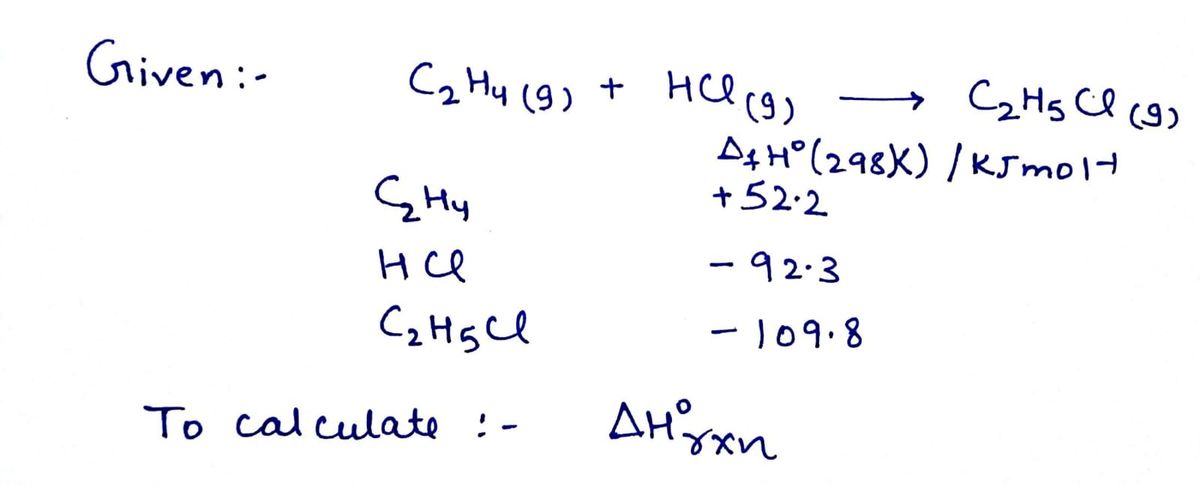 Given:-
C₂H₄(g) + HCl(g) ⟶ C₂H₅Cl(g)
ΔfH°(298K) /KJmol-1
C₂H₄ +52.2
HCl -92.3
C₂H₅Cl -109.8
To calculate :- ΔH°rxn